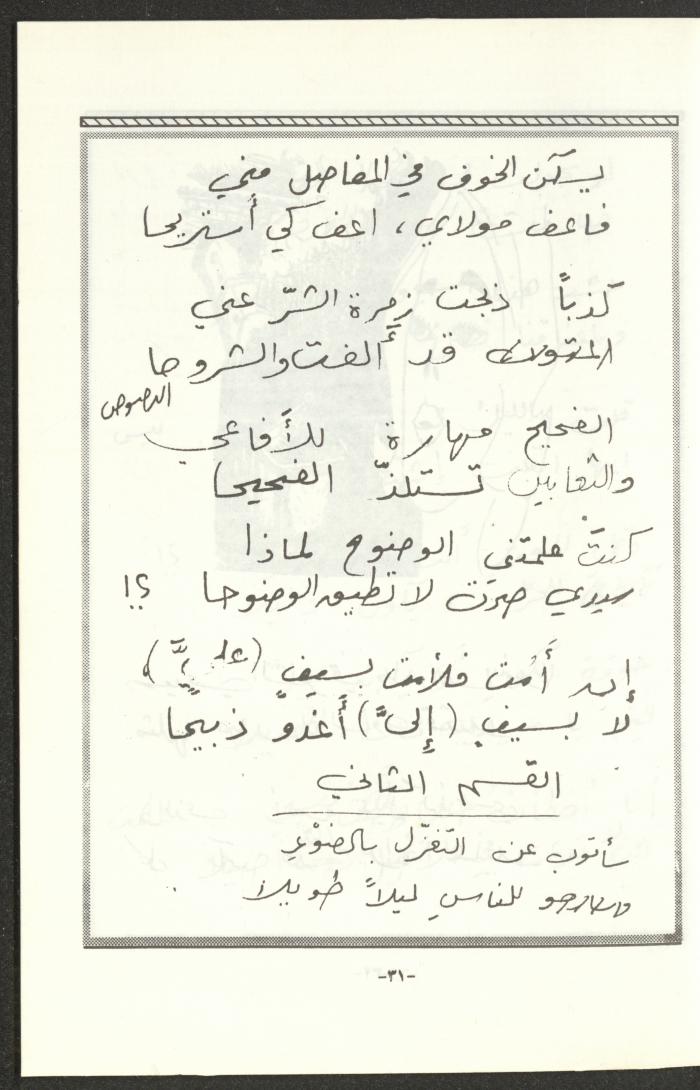 يسكن الخوف في المفاصل مني
فاعف مولاي، اعف كي أستريحا
كذباً ذبجت زمرة الشرّ عني
المتون قد أَلفت والشروحا
النصوص
الفحيح مهارة للأَفاعي
والثعابين تستلذّ الفحيحا
كنتَ علمتني الوضوح لماذا
سيدي صرت لا تطيق الوضوحا ؟!
إن أَمُت فلأمت بسيفٍ (عليَّ)
لا بسيفٍ (إِليَّ) أَغدو ذبيحا
القسم الثاني
سأتوب عن التغزّل بالضوْءِ
وسأرجو للناسِ ليلاً طويلا
-٣١-